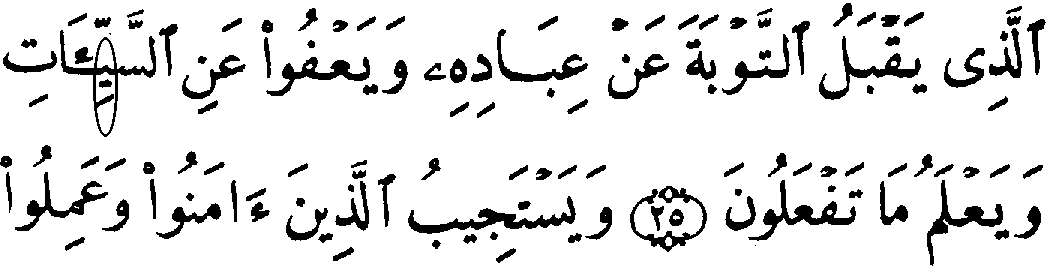 ٱلَّذِى يَقْبَلُ ٱلتَّوْبَةَ عَنْ عِبَادِهِۦ وَيَعْفُوا۟ عَنِ ٱلسَّيِّـَٔاتِ
وَيَعْلَمُ مَا تَفْعَلُونَ ﴿٢٥﴾ وَيَسْتَجِيبُ ٱلَّذِينَ ءَامَنُوا۟ وَعَمِلُوا۟